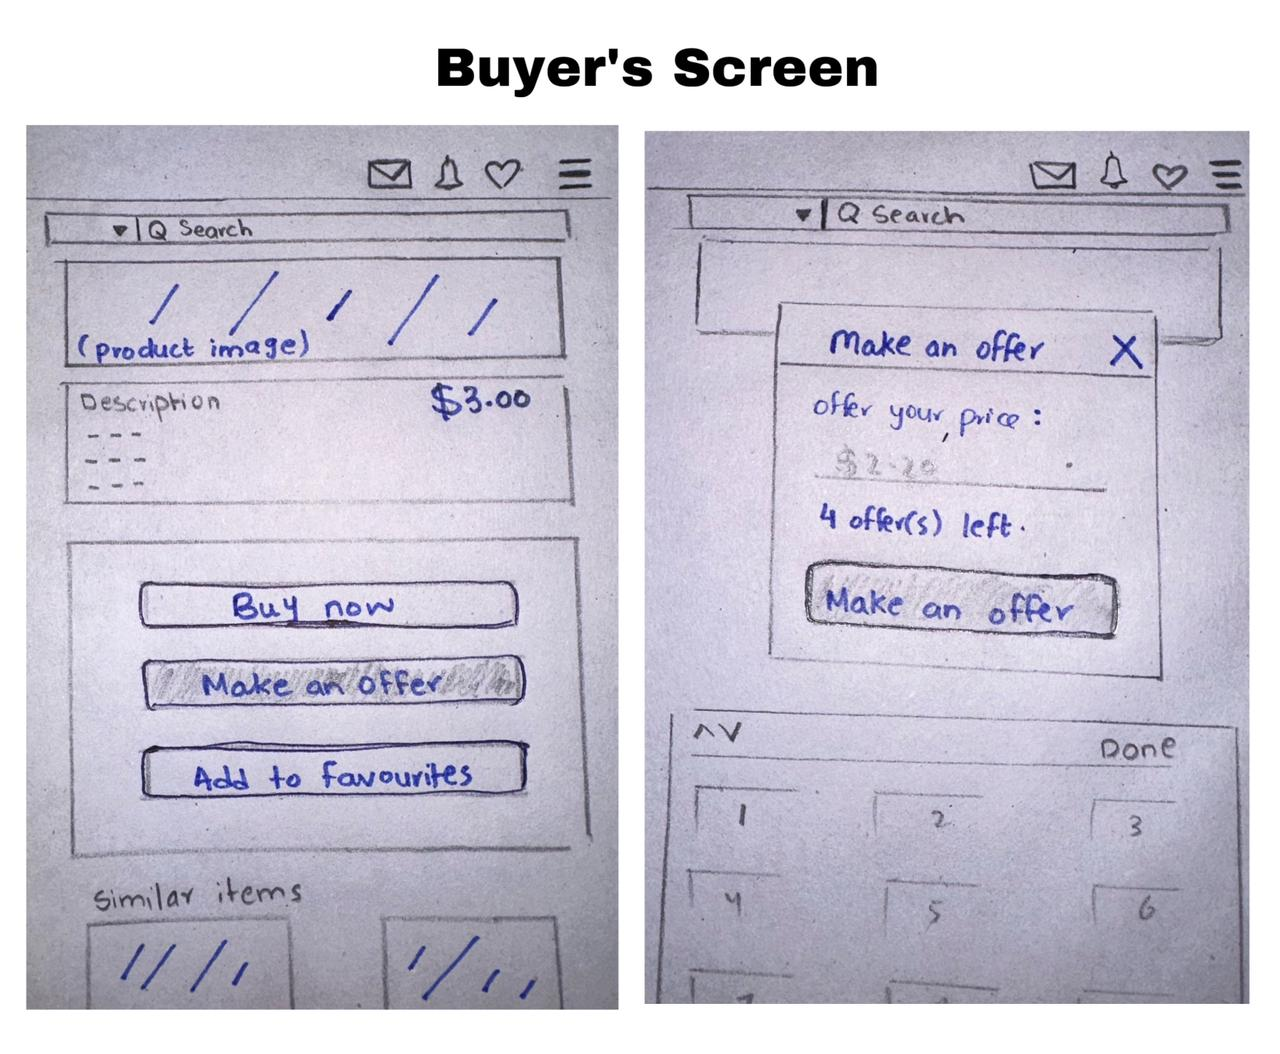 Buyer's Screen
Search
(product image)
Description
$3.00
Buy now
Make an offer
Add to favourites
Similar items
Search
Make an offer X
offer your price:
$2.20
4 offer(s) left.
Make an offer
Done
1 2 3
4 5 6